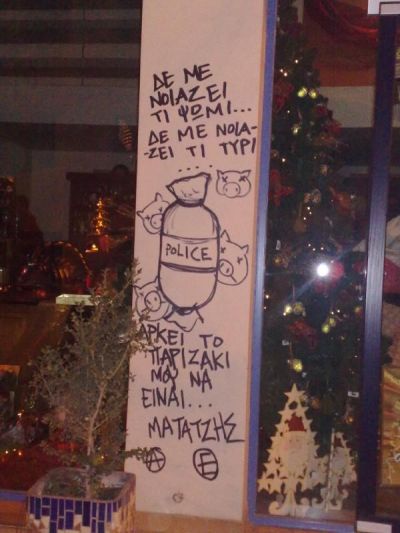 ΔΕ ΜΕ
ΝΟΙΑΖΕΙ
ΤΙ ΨΩΜΙ...
ΔΕ ΜΕ ΝΟΙΑ-
-ΖΕΙ ΤΙ ΤΥΡΙ
.....
POLICE
ΑΡΚΕΙ ΤΟ
ΠΑΡΙΖΑΚΙ
ΜΟΥ ΝΑ
ΕΙΝΑΙ...
ΜΑΤΑΤΖΗΣ
Α Ε